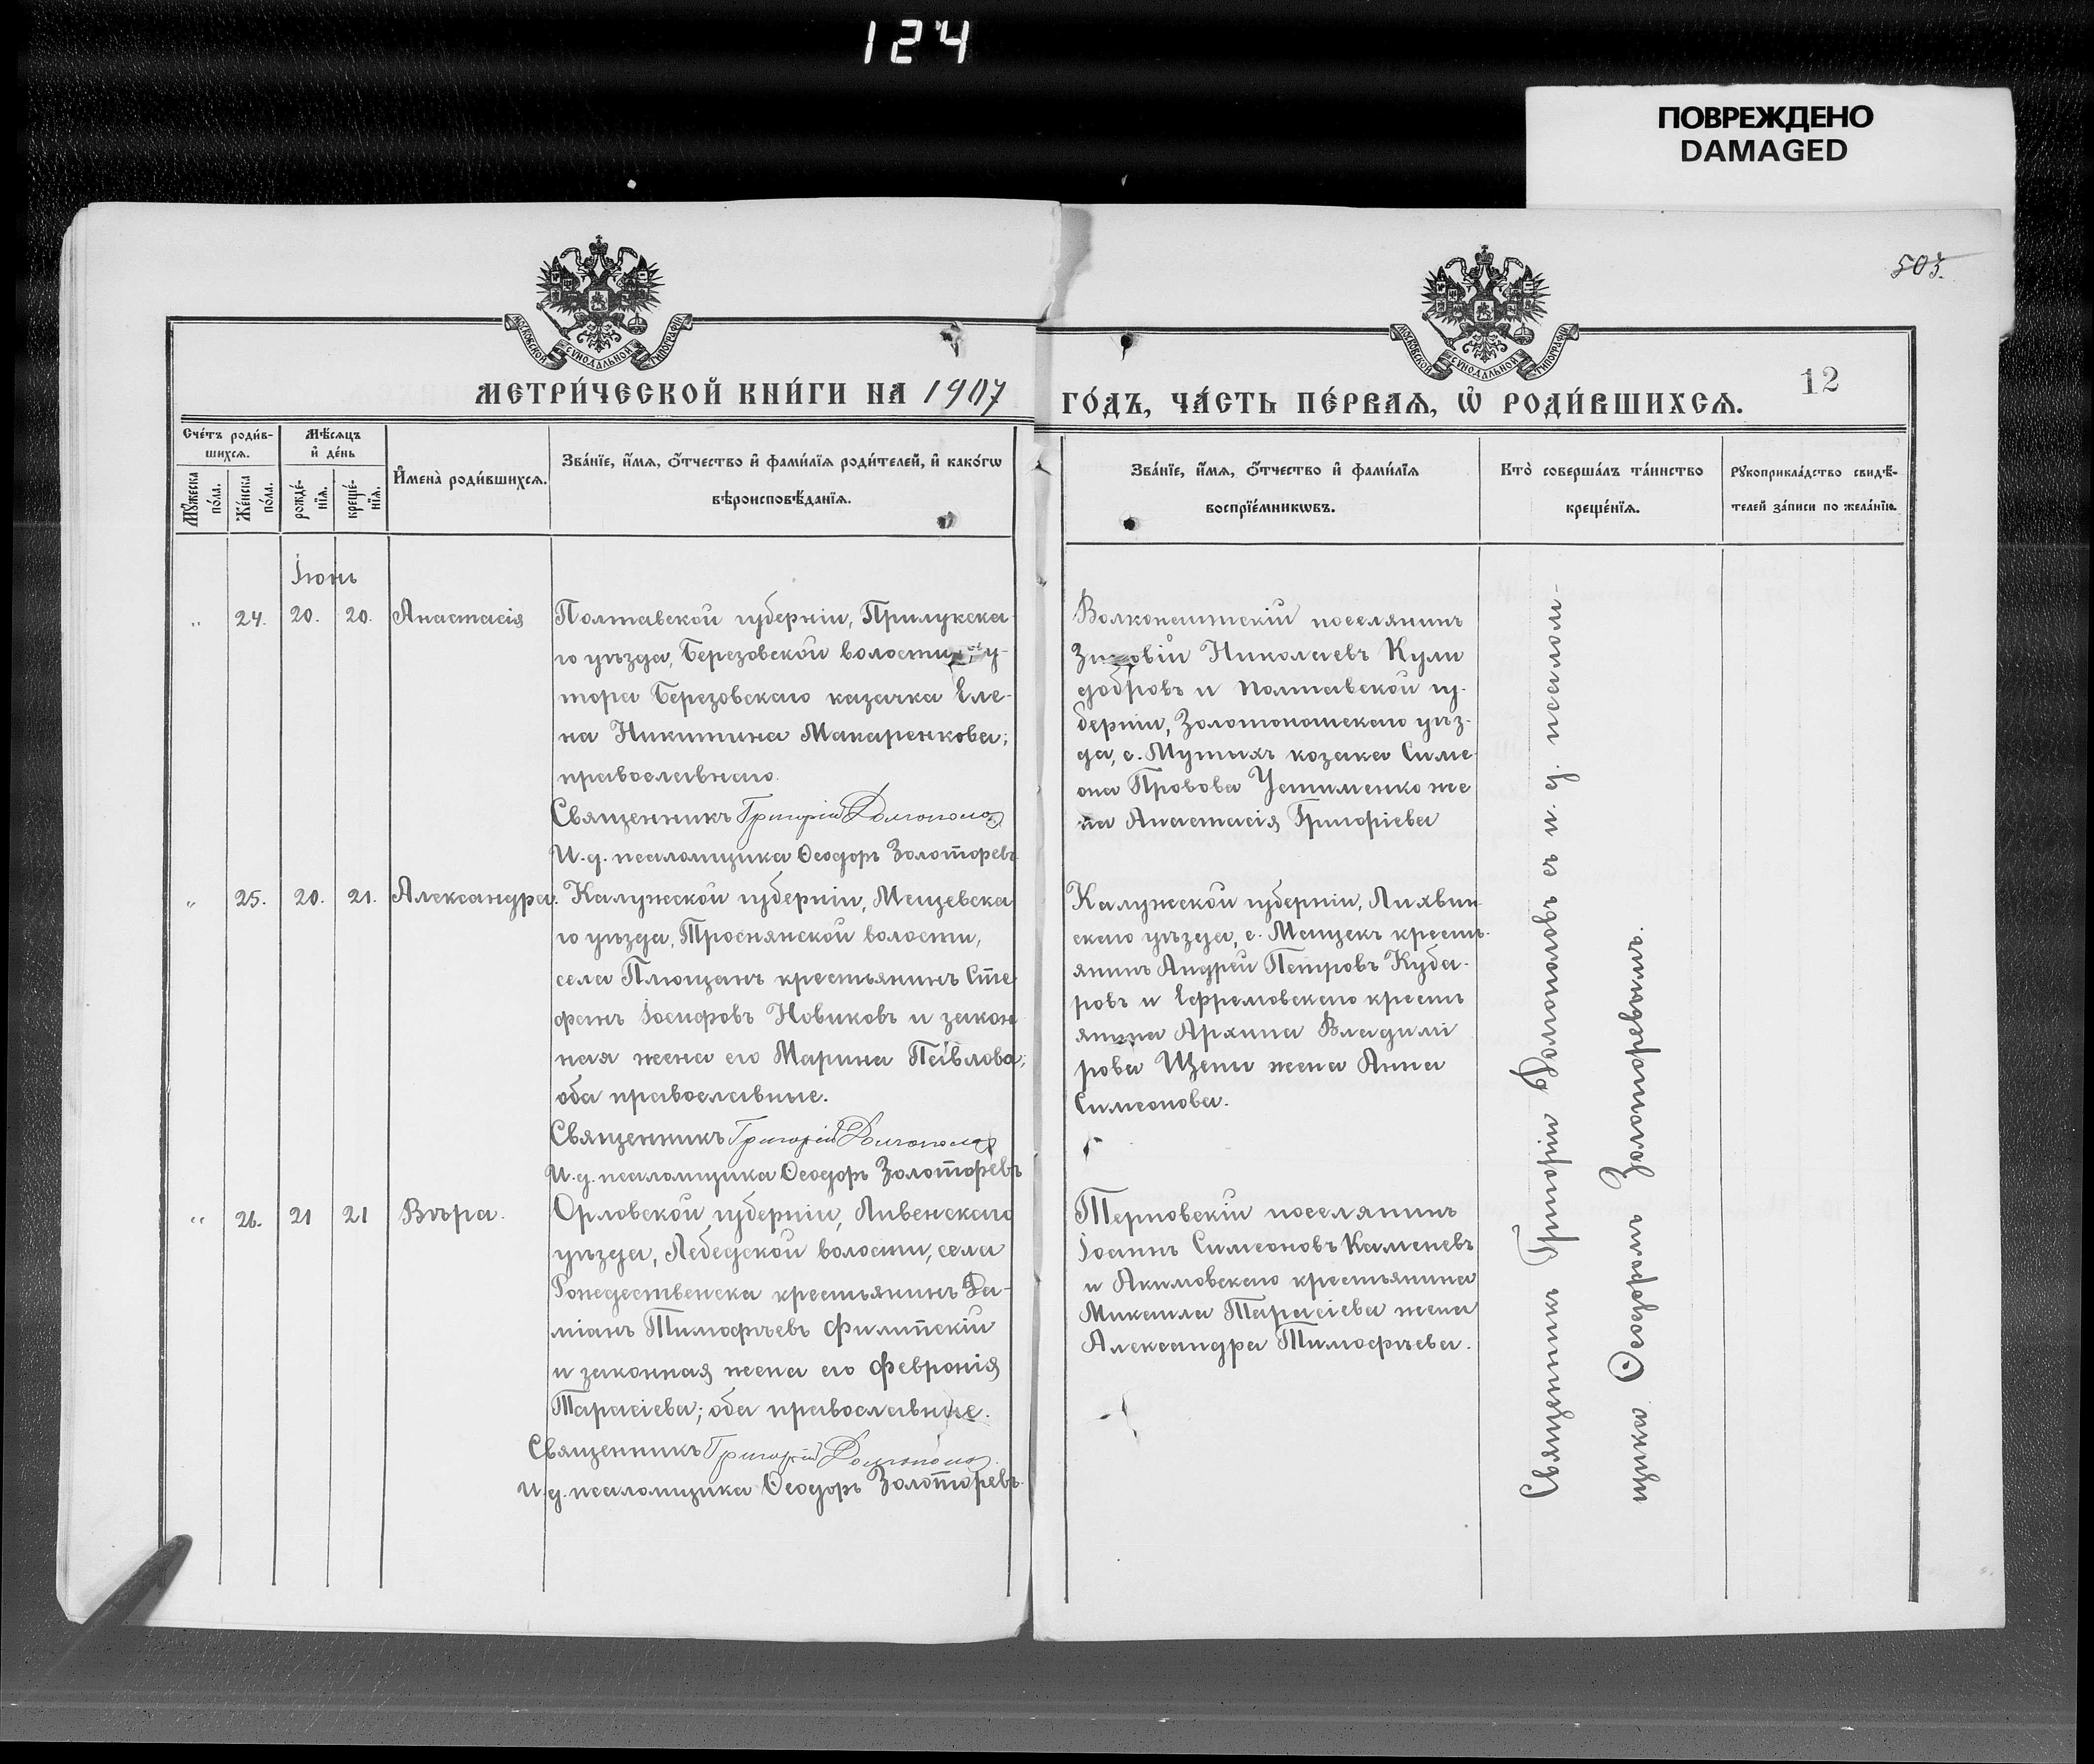 124
ПОВРЕЖДЕНО
DAMAGED
503.
МОСКОВСКОЙ СѴНОДАЛЬНОЙ ТИПОГРАФІИ
МОСКОВСКОЙ СѴНОДАЛЬНОЙ ТИПОГРАФІИ
МЕТРИ́ЧЕСКОЙ КНИ́ГИ НА 1907
ГО́ДЪ, ЧА́СТЬ ПЕ́РВАѦ, Ѡ҆ РОДИ́ВШИХСѦ.
12
Сче́тъ роди́в-
шихсѧ.
Мꙋ́жеска по́ла.
Же́нска по́ла.
Мѣ́сѧцъ
и҆ де́нь
рожде́-нїѧ.
креще́-нїѧ.
И҆мена̀ роди́вшихсѧ.
Зва́нїе, и҆́мѧ, ѻ҆́тчество и҆ фами́лїѧ роди́телей, и҆ како́гѡ
вѣроисповѣ́данїѧ.
Зва́нїе, и҆́мѧ, ѻ҆́тчество и҆ фами́лїѧ
воспрїе́мникѡвъ.
Кто̀ соверша́лъ та́инство
креще́нїѧ.
Рꙋкоприкла́дство свидѣ́-
телей за́писи по жела́нїю.
Іюнь
" 24. 20. 20. Анастасія
Полтавской губерніи, Прилукска-
го уѣзда, Березовской волости, ху-
тора Березовскаго казачка Еле-
на Никитина Макаренкова;
православнаго.
Священникъ Григорій Долгополов
И. д. псаломщика Ѳеодоръ Золоторевъ
Волконештскій поселянинъ
Зиновій Николаевъ Кули
добровъ и Полтавской гу-
берніи, Золотоношскаго уѣз-
да, с. Мутыхъ козака Симе-
она Провова Устименко же
на Анастасія Григоріева
" 25. 20. 21. Александра.
Калужской губерніи, Мещевска
го уѣзда, Троснянской волости,
села Плющанъ крестьянинъ Сте-
фанъ Іосифовъ Новиковъ и закон
ная жена его Марина Павлова;
оба православные.
Священникъ Григорій Долгополов
И. д. псаломщика Ѳеодоръ Золоторевъ
Калужской губерніи, Лихвин
скаго уѣзда, с. Мещекъ кресть-
янинъ Андрей Петровъ Куба-
ровъ и Ефремовскаго кресть
янина Архипа Владимі
рова Щепи жена Анна
Симеонова.
" 26. 21 21 Вѣра.
Орловской губерніи, Ливенскаго
уѣзда, Лебедской волости, села
Рождественска крестьянинъ Да-
міанъ Тимофѣевъ Филипскій
и законная жена его Февронія
Тарасіева; оба православные.
Священникъ Григорій Долгополов
И. д. псаломщика Ѳеодоръ Золоторевъ
Терновскій поселянинъ
Іоаннъ Симеоновъ Каменевъ
и Акимовскаго крестьянина
Михаила Тарасіева жена
Александра Тимофѣева.
Священникъ Григорій Долгополовъ съ и. д. псалом-
щика Ѳеодоромъ Золоторевымъ.